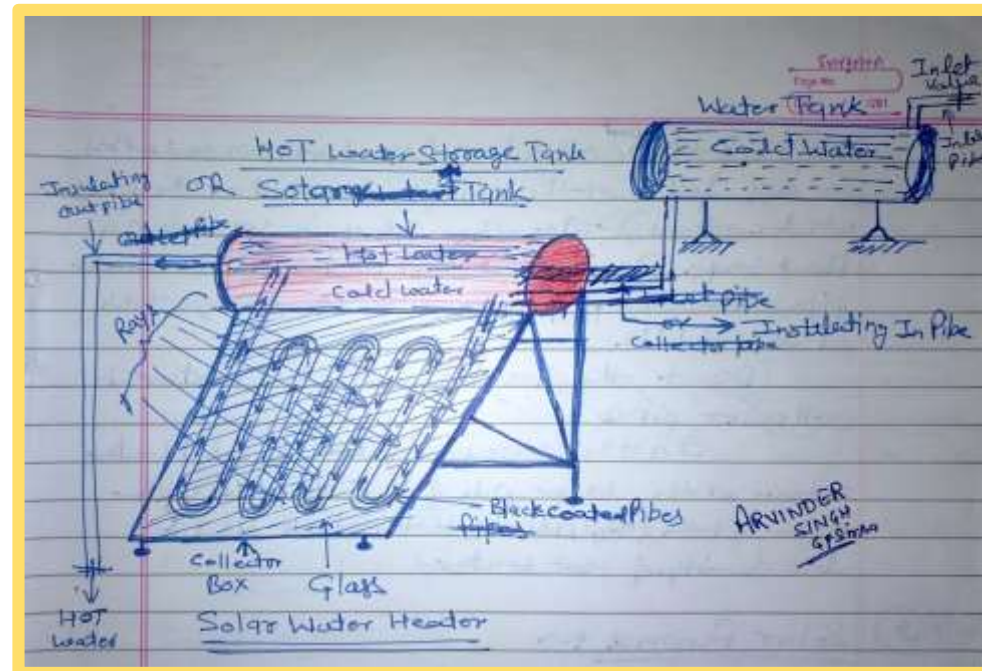 Inlet
Valve
Water Tank
Cold Water
Inlet
Pipe
HOT Water Storage Tank
OR
Solar Tank
Insulating
out pibe
Hot Water
Cold Water
Rays
or
Insulating In Pibe
Collector pibe
Black coated Pibes
Collector
Box
Glass
HOT
Water
Solar Water Heater
ARVINDER
SINGH